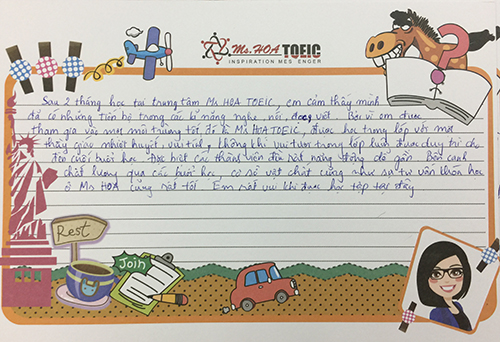 Ms.HOA TOEIC
INSPIRATION MESSENGER
Sau 2 tháng học tại trung tâm Ms HOA TOEIC, em cảm thấy mình
đã có những tiến bộ trong các kĩ năng nghe, nói, đọc, viết. Bởi vì em được
tham gia vào một môi trường tốt đó là Ms HOA TOEIC, được học trong lớp với một
thầy giáo nhiệt huyết, vui tính, không khí vui tươi trong lớp luôn được duy trì cho
đến cuối buổi học. Đặc biệt các thành viên đều rất năng động dễ gần. Bên cạnh
chất lượng qua các buổi học, cơ sở vật chất cũng như sự tư vấn khóa học
ở Ms HOA cũng rất tốt. Em rất vui khi được học tập tại đây
Rest
Join